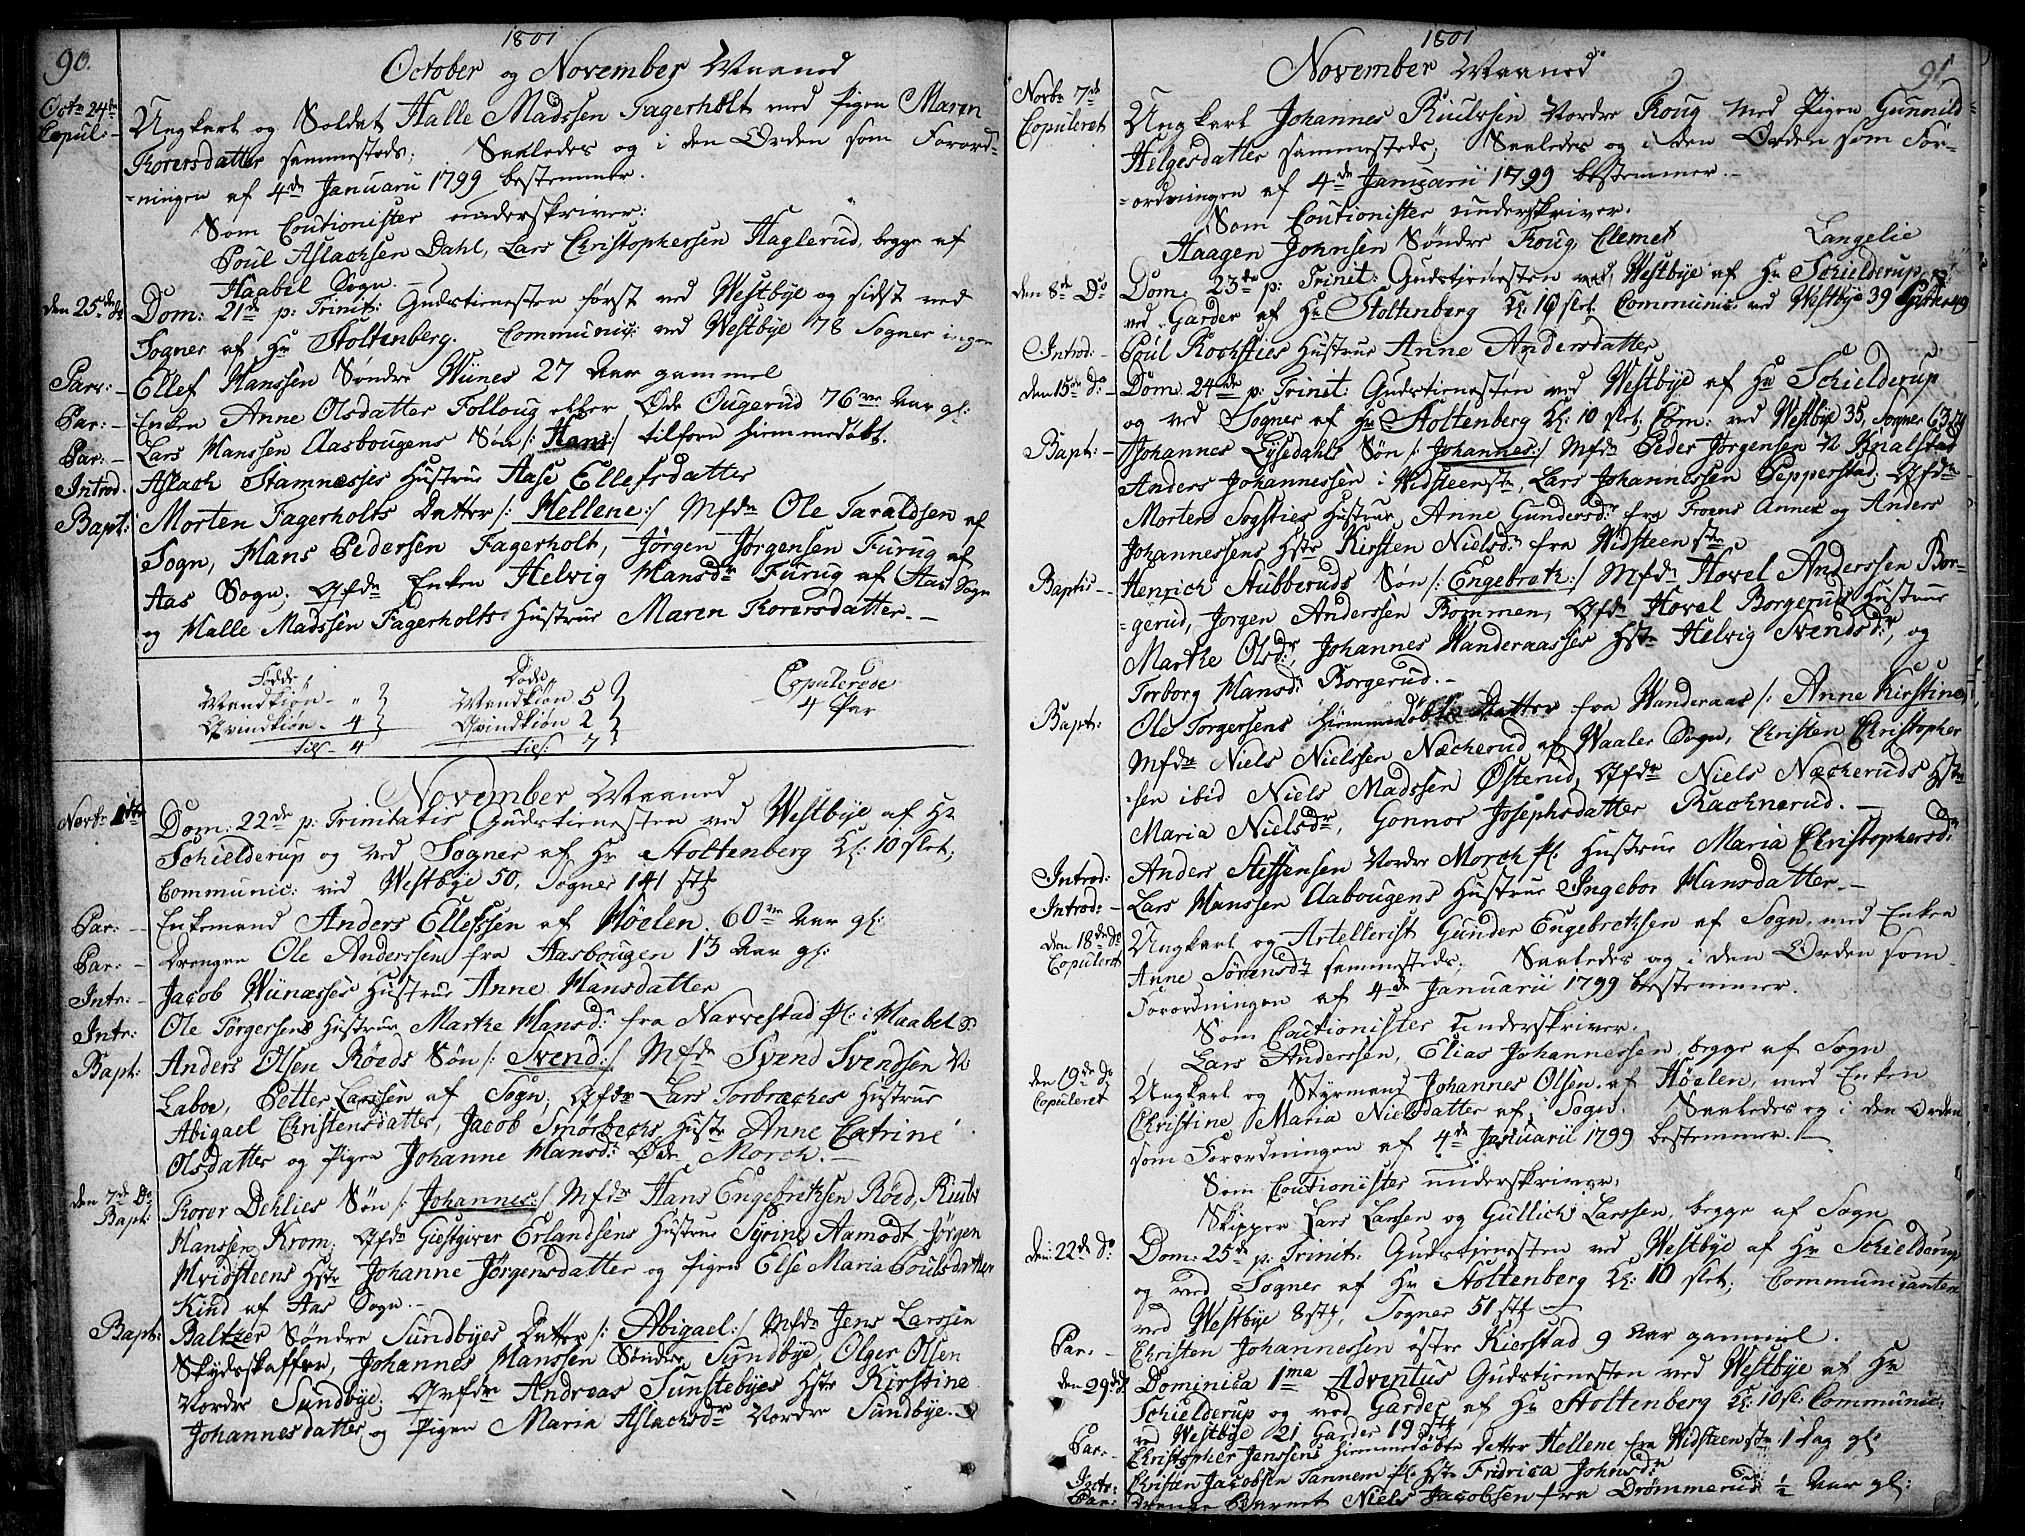 90.
1801
October og November Maaned
Octr 24de Copul: Ungkarl og Soldat Halle Madssen Fagerholt med Pigen Maren
Korersdatter sammesteds; Saaledes og i den Orden som Forord-
-ningen af 4de Januarii 1799 bestemmer.
Som Coutionister underskriver:
Poul Aslachsen Dahl, Lars Christophersen Haglerud, begge af
Haabel Sogn.
den 25de do Dom: 21de p: Trinit: Gudstienesten først ved Westbye og sidst ved
Sogner af Hr Stoltenberg. Communic: ved Westbye 78 Sogner ingen
Par: Ellef Hanssen Søndre Wünes 27 Aar gammel
Par: Enken Anne Olsdatter Folloug eller Øde Ougerud 76 Aar gl:
Par: Lars Hanssen Aasbougens Søn /: Hans:/ tilforn hiemmedøbt.
Introd. Aslach Stamnesses Hustrue Aase Ellefsdatter
Bapt: Morten Fagerholts Datter /: Hellene:/ Mfdr Ole Taraldsen af
Sogn, Hans Pedersen Fagerholt, Jørgen Jørgensen Furug af
Aas Sogn. Qfdr Enken Helvig Hansdr Furug af Aas Sogn
og Halle Madssen Fagerholts Hustrue Maren Korersdatter.
Fødde Døde Copulerede
Mandkiøn - " Mandkiøn 5 4 Par
Qvindkiøn - 4 Qvindkiøn 2
tils - 4 tils: 7
November Maaned
Novbr 1ste Dom: 22de p: Trinitatis Gudstienesten ved Westbye af Hr
Schielderup og ved Sogner af Hr Stoltenberg Kl: 10 slet;
Communic: ved Westbye 50, Sogner 141 stk
Par: Enkemand Anders Ellefssen af Høelen 60 Aar gl:
Par: Drengen Ole Anderssen fra Aasbougen 13 Aar gl:
Intr: Jacob Wünæsses Hustrue Anne Hansdatter
Intr: Ole Torgersens Hustrue Marthe Hansd: fra Narvestad Pl: i Haabel S:
Bapt: Anders Olsen Røeds Søn /: Svend:/ Mfdr Svend Svendsen N
Laboe, Petter Larssen af Sogn, Qfdr Lars Torbræches Hustrue
Abigael Christensdatter, Jacob Smørbechs Hustr Anne Catrine
Olsdatter og Pigen Johanne Hansd: Øde Morch.
den 7de Do Bapt: Korer Dehlies Søn /: Johannes:/ Mfdr Hans Engebretsen Røed,
Hanssen Krom, Qfdr Giestgiver Erlandsens Hustrue Syrine Aamodt Jørgen
Hvidsteens Hstr Johanne Jørgensdatter og Pigen Else Maria Poulsdatter
Kind af Aas Sogn.
Bapt: Baltzer Søndre Sundbyes Datter /: Abigael:/ Mfdr Jens Larssen
Skydsskaffer, Johannes Hanssen Søndre Sundbye, Olger Olsen
Nordre Sundbye; Qvfdr Andreas Sunstebyes Hstr Kirstine
Johannesdatter og Pigen Maria Aslachsdr Nordre Sundbye.
1801
November Maaned
91
Novbr 7de Copuleret Ungkarl Johannes Nordre Koug med Pigen Gunnild
Helgesdatter sammesteds; Saaledes og i den Orden som For-
-ordningen af 4de Januarii 1799 bestemmer.
Som Coutionister underskriver:
Haagen Johnsen Søndre Koug, Clemet Langelie
den 8de Do Dom: 23de p: Trinit: Gudstienesten ved Westbye af Hr Schielderup,
ved Garder af Hr Stoltenberg Kl: 10 slet. Communic: ved Westbye 39 Garder 49
Introd: Poul Kochsties Hustrue Anne Andersdatter
den 15de Do Dom: 24de p: Trinit: Gudstienesten ved Westbye af Hr Schielderup
og ved Sogner af Hr Stoltenberg Kl: 10 slet; Com: ved Westbye 35, Sogner 63
Bapt: Johannes Lysedahls Søn /: Johannes:/ Mfdr Peder Jørgensen N
Anders Johannessen i Widsteen, Lars Johannessen Pepperstad. Qfdr
Morten Sogsties Hustrue Anne Gundersdr fra Froens Annex og Anders
Johannessens Hstr Kirsten Nielsdr fra Widsteen
Baptis Henrich Stubberuds Søn /: Engebreth:/ Mfdr Hovel Anderssen Bor-
-gerud, Jørgen Anderssen Bommen, Qfdr Hovel Borgeruds Hustrue
Marthe Olsdr, Johannes Wanderaasses Hstr Helvig Svendsdr, og
Torborg Hansd: Borgerud.
Bapt: Ole Torgersens hiemmedøbte Datter fra Wanderaas /: Anne Kirstine
Mfdr Niels Nielssen Næcherud af Waaler Sogn, Christen Christopher
-sen ibid Niels Madssen Østerud, Qfdr Niels Næcheruds Hstr
Maria Nielsdr, Gonnor Josephsdatter Rachnerud.
Introd: Anders Steffensen Nordre Morch Pl: Hustrue Maria Christophersd:
Introd: Lars Hanssen Aabougens Hustrue Ingebor Hansdatter.
den 18de do Copuleret Ungkarl og Artellerist Gunder Engebrethsen af Sogn med Enken
Anne Sørensdr sammesteds; Saaledes og i den Orden som
Forordningen af 4de Januarii 1799 bestemmer.
Som Cautionister Underskriver.
Lars Anderssen, Elias Johannessen begge af Sogn
den 19de do Copuleret Ungkarl og Styrmand Johannes Olsen af Høelen, med Enken
Christine Maria Nielsdatter af Sogn. Saaledes og i den Orden
som Forordningen af 4de Januarii 1799 bestemmer.
Som Coutionister underskriver:
Skipper Lars Larssen og Gullich Larssen, begge af Sogn
den 22de do: Dom: 25de p: Trinit: Gudstienesten ved Westbye af Hr Schielderup
og ved Sogner af Hr Stoltenberg Kl: 10 slet; Communicanter
ved Westbye 8 stk, Sogner 51 stk
Par: Christen Johannessen østre Kierstad 9 Aar gammel.
den 29de Dominica 1ma Adventus Gudstienesten ved Westbye af Hr
Schielderup og ved Garder af Hr Stoltenberg Kl: 10 sl: Communic:
ved Westbye 21 Garder 19 stk
Par: Christopher Jenssens hiemmedøbte Datter Hellene fra Widsteen 1 Dag gl:
Intr: Christen Jacobsen Tannem Pl: Hstr Fridrica Johnsdr
Par: Drenge Barnet Niels Jacobsen fra Drømmerud 1/2 Aar gl: